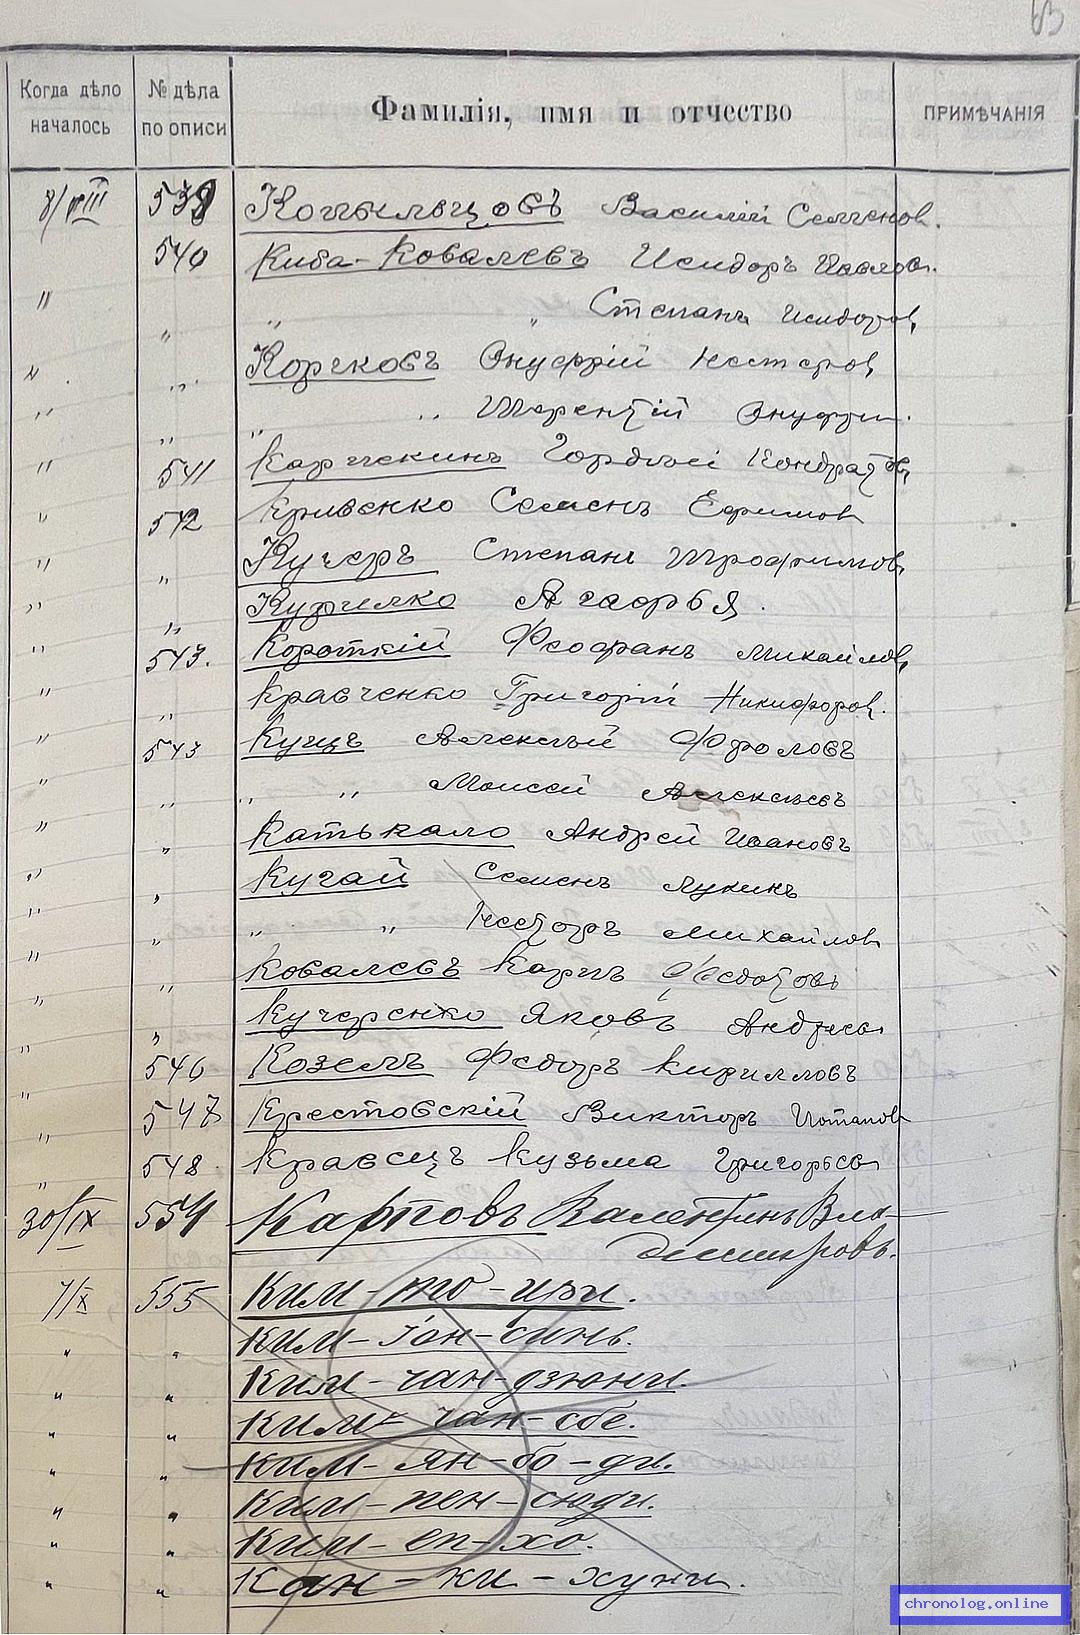 63
Когда дѣло началось
№ дѣла по описи
Фамилія, имя и отчество
ПРИМѢЧАНІЯ
8/VIII 539 Копыльцовъ Василій Семенов.
540 Киба-Ковалевъ Исидоръ Павлов.
" " " " Степанъ Исидоров
" " Корчковъ Онуфрій Нестеров
" " " " Терентій Онуфри.
" 541 Гордѣй Кондратов
" 542 Кривенко Семенъ Ефимов
" " Кучеръ Степанъ Трофимов
" " Курилко Агафья.
" 543. Короткій Феофанъ Михайлов
" " Кравченко Григорій Никифоров.
" 543 Куцъ Алексѣй Фроловъ
" " " " Моисей Алексѣевъ
" " Катькало Андрей Ивановъ
" " Кугай Семенъ Лукинъ
" " " " Несторъ Михайлов
" " Ковалевъ Карпъ Федотовъ
" " Кучеренко Яковъ Андреев
" 546 Козелъ Федоръ Кирилловъ
" 547 Крестовскій Викторъ Потапов
" 548 Кравецъ Кузьма Григорьев
30/IX 554 Карповъ Валентинъ Вла-
димировъ.
7/X 555 Ким-то-ири.
" " Ким-іон-синь.
" " Ким-чан-дзюни.
" " Ким-чан-сбе.
" " Ким-ян-бо-ди.
" " Ким-пен-сюди.
" " Ким-еп-хо.
" " Кан-ки-хуни.
chronolog.online